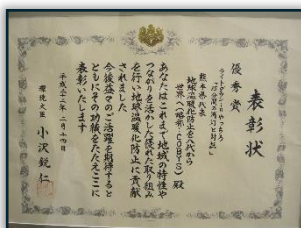 表彰状
優秀賞
熊本県代表
地球温暖化防止を八代から
世界へ
殿
あなたはこれまで地域の特性や
つながりを活かした優れた取り組み
を行い地球温暖化防止に貢献
されました
今後益々のご活躍を期待すると
ともにその功績をたたえここに
表彰いたします
平成二十二年 二月十四日
環境大臣 小沢鋭仁